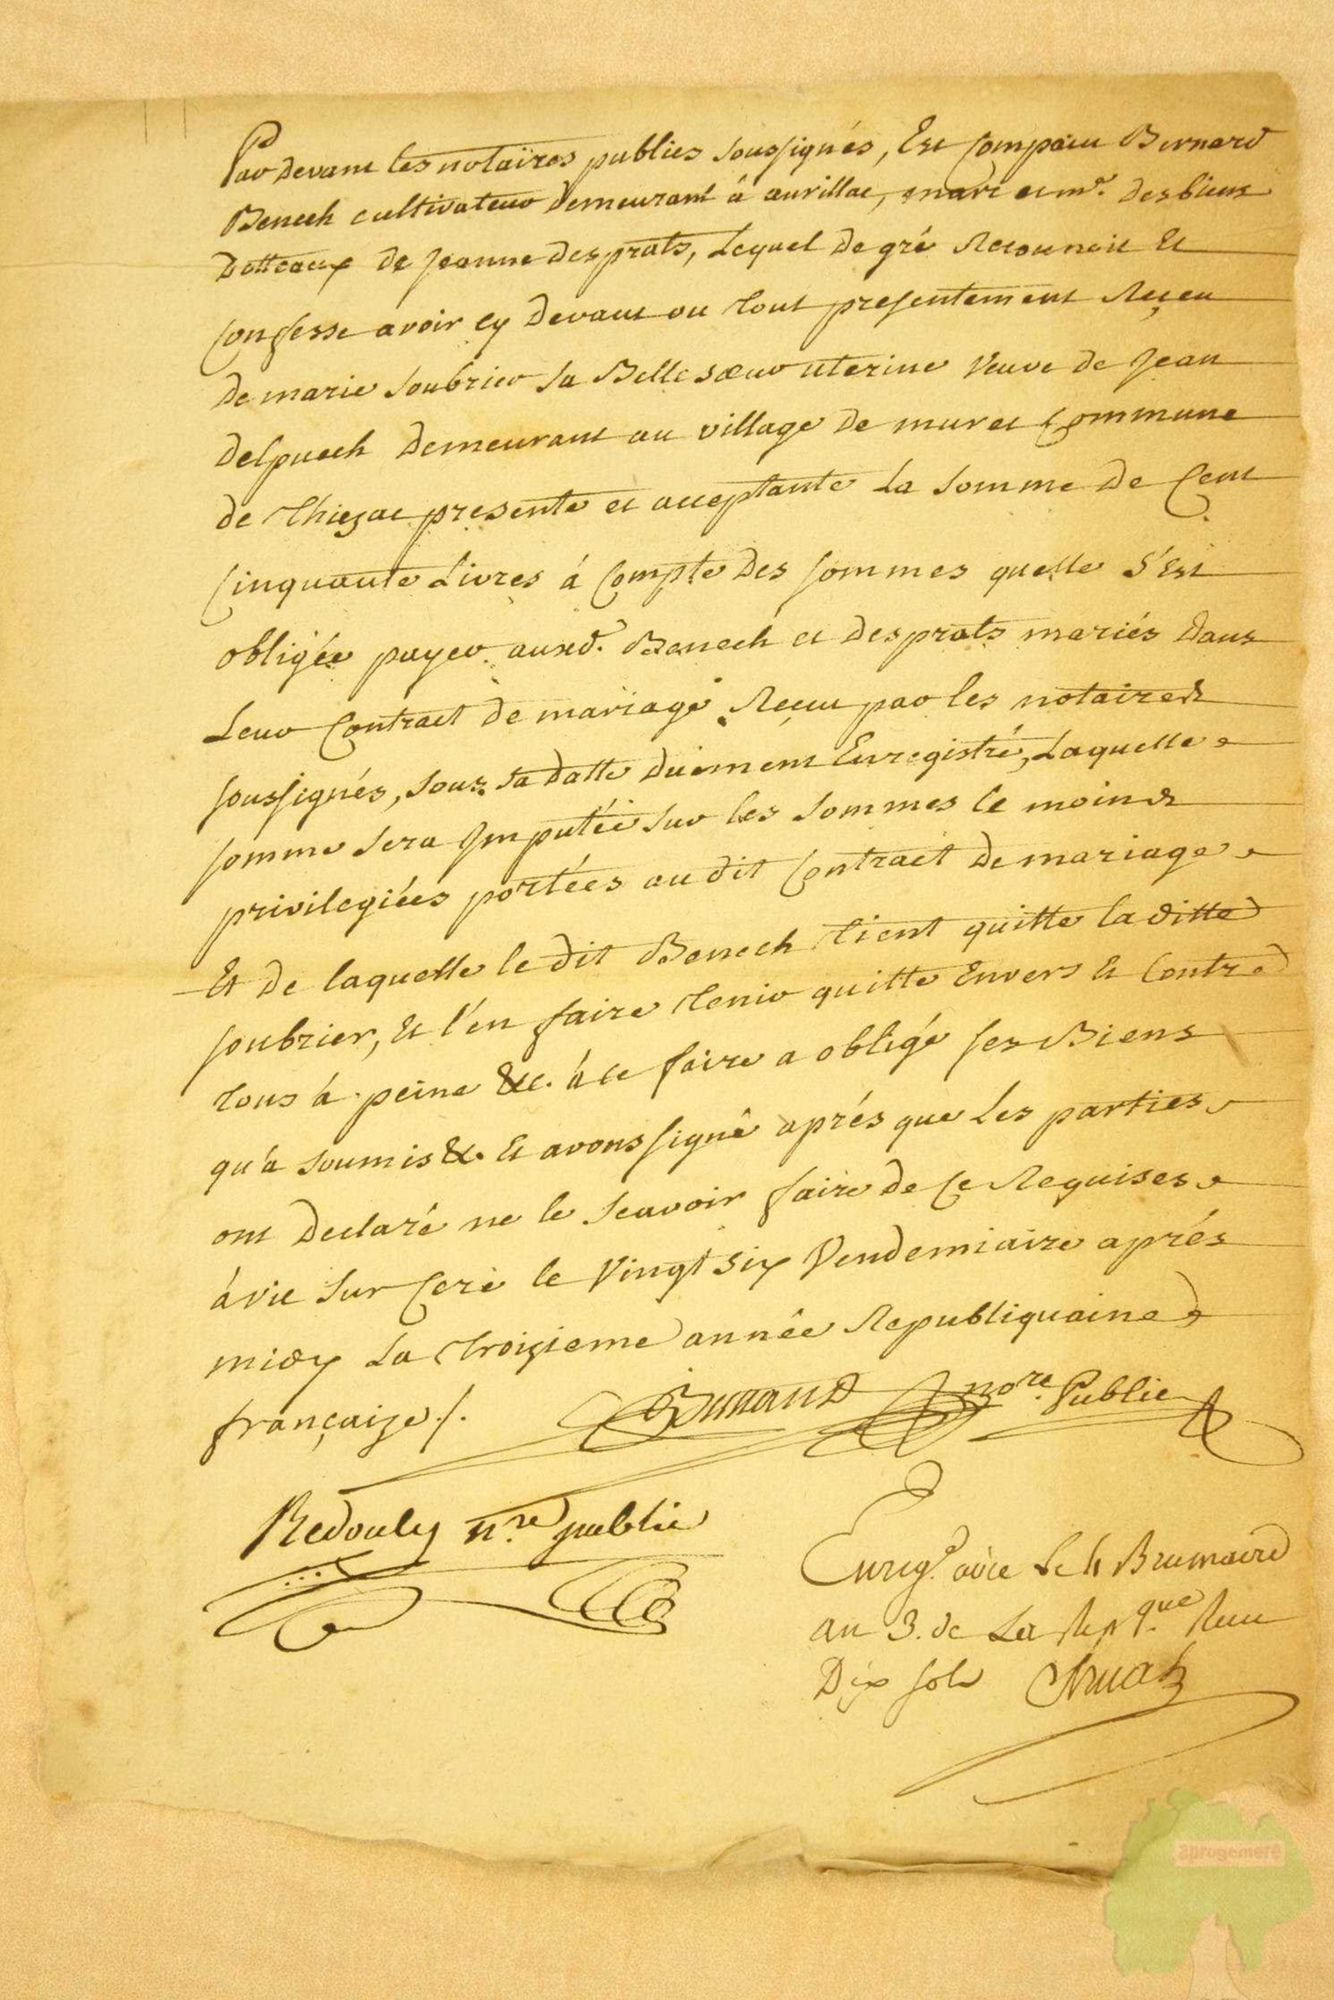 Par devant les notaires publics soussignés, Est comparu Bernard
Benech cultivateur demeurant à aurillac, mari et m.e des biens
Dotteaux de jeanne desprats, Lequel de gré Reconnoit et
confesse avoir cy devant ou tout presentement Reçeu
de marie soubrier sa Bellesœur uterine veuve de jean
delpuech demeurant au village de muret commune
de thiezac presente et acceptante La somme de cent
cinquante Livres à compte des sommes quelle s'est
obligée payer auxd. Benech et desprats mariés dans
Leur contract de mariage Reçeu par les notaires
soussignés, sous sa datte duement Enregistré, Laquelle
somme sera jmputée sur les sommes le moins
privilegiées portées au dit contract de mariage
Et de laquelle le dit Benech tient quitte la ditte
soubrier, Et l'en faire tenir quitte Envers Et contre
tous à peine &c. à ce faire a obligé ses Biens
qu'a soumis &c. Et avons signé aprés que Les parties
ont declaré ne le sçavoir faire de ce Requises
à vic sur Cere le vingt six vendemiaire aprés
midy La troizieme année Republiquaine
françaize /.
no.re Public
Redouly n.re public
Enreg.é à vic Le 4 Brumaire
an 3. de La Rep.que Reçu
Dix sols
aprogemere